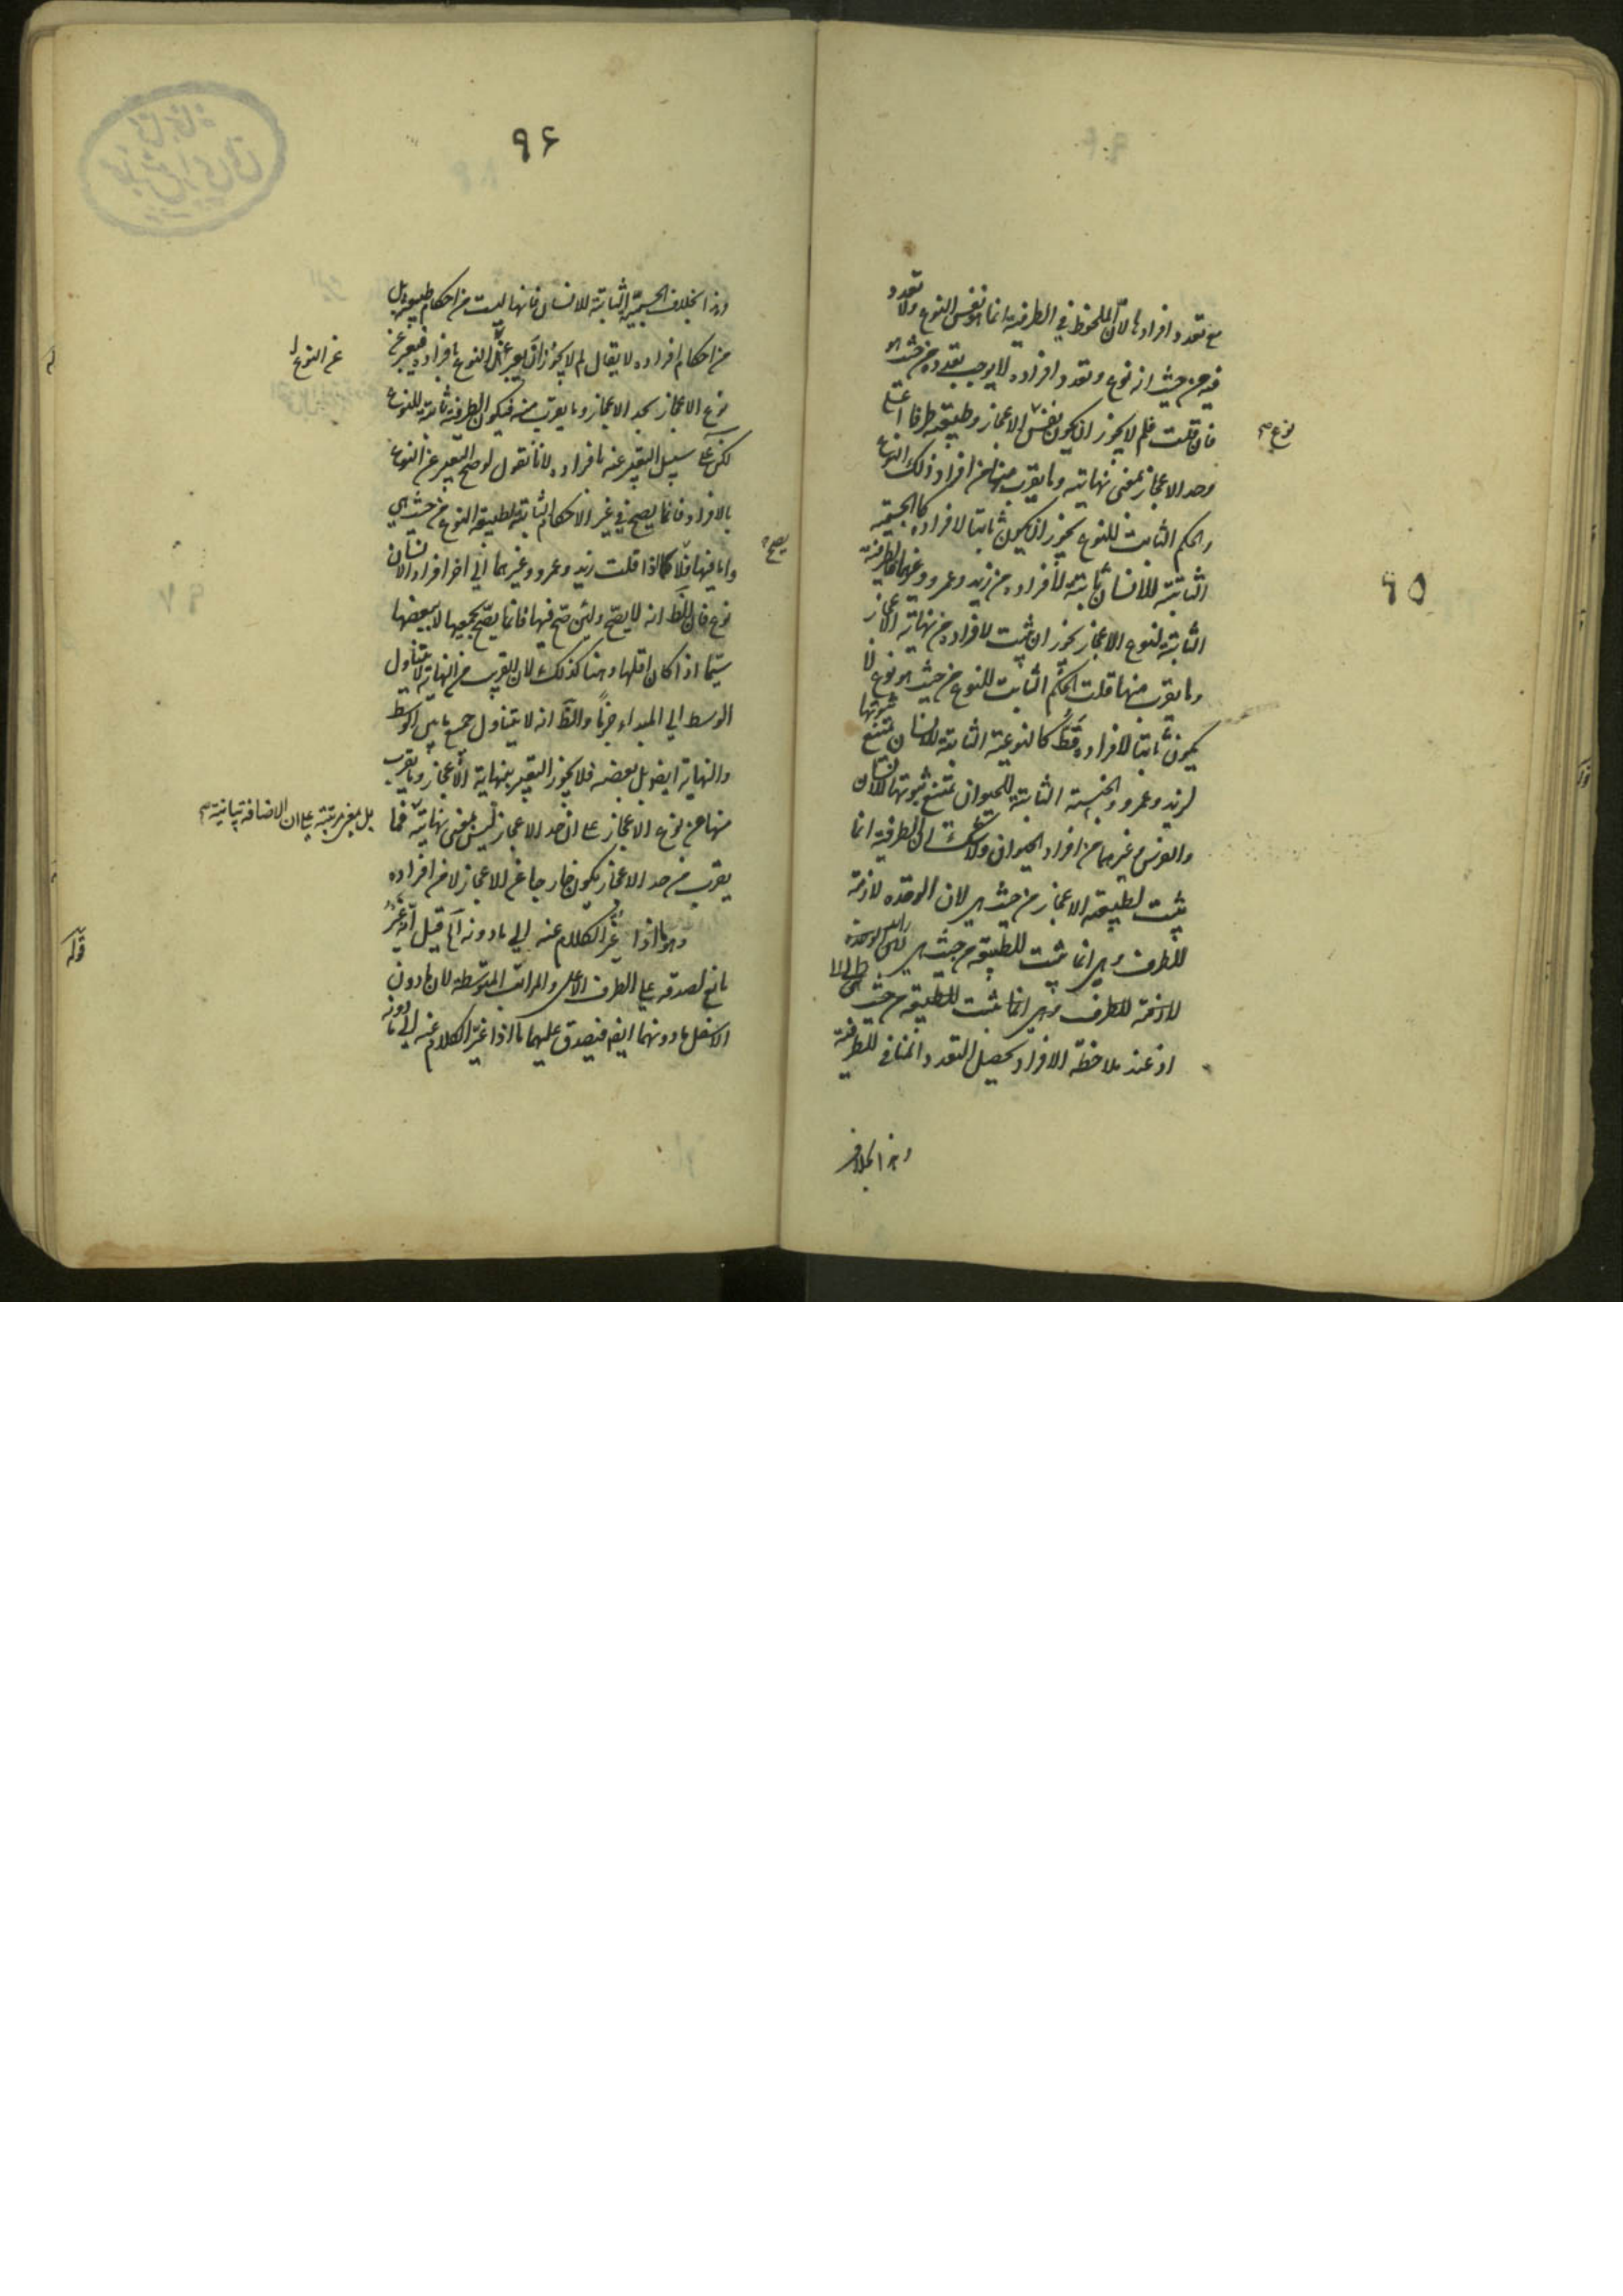 ٩٥
مع تعدد افرادها لان الملحوظ في الطرفية انما هو نفس النوع ولا تعدد
فيه من حيث انه نوع وتعدد افراده لا يوجب تعدده من حيث هو
نوع صح
فان قلت فلم لا يجوز ان يكون نفس الاعجاز وطبيعته طرفا اعلى
وحد الاعجاز بمعنى نهايته وما يقرب منها من افراد ذلك النوع
والحكم الثابت للنوع يجوز ان يكون ثابتا لافراده كالجسمية
الثابتة للانسان ثابتة لافراده من زيد وعمرو وغيرهما فالطرفية
الثابتة لنوع الاعجاز يجوز ان يثبت لافراده من نهاية الاعجاز
وما يقرب منها قلت الحكم الثابت للنوع من حيث هو نوع لا
يكون ثابتا لافراده قط كالنوعية الثابتة للانسان يمتنع ثبوتها
لزيد وعمرو والجنسية الثابتة للحيوان يمتنع ثبوتها للانسان
والفرس وغيرهما من افراد الحيوان ولا شك ان الطرفية انما
يثبت لطبيعة الاعجاز من حيث هي لان الوحدة لازمة
للطرف وهي انما يثبت للطبيعة من حيث هي
لازمة للطرف وهي انما يثبت للطبيعة من حيث هي
اذ عند ملاحظة الافراد يحصل التعدد المنافي للطرفية
وهذا بخلاف
٩٦
وهذا بخلاف الجسمية الثابتة للانسان فانها ليست من احكام طبيعته بل
من احكام افراده لا يقال لم لا يجوز ان يعبر عن النوع بافراده فيعبر عن
عن النوع
نوع الاعجاز بحد الاعجاز وما يقرب منه فيكون الطرفية ثابتة للنوع
لكن على سبيل التعبير عنه بافراده لانا نقول لو صح التعبير عن النوع
بالافراد فانما يصح في غير الاحكام الثابتة لطبيعة النوع من حيث هي
واما فيها فلا كما اذا قلت زيد وعمرو وغيرهما الى اخر افراد الانسان
يصح
نوع فان الظ انه لا يصح ولئن صح فيها فانما يصح بجميعها لا ببعضها
سيما اذا كان اقلها وهنا كذلك لان القرب من النهاية لا يتناول
الوسط الى المبداء جزما والظ انه لا يتناول جميع ما بين الوسط
والنهاية ايضا بل بعضه فلا يجوز التعبير بنهاية الاعجاز وما يقرب
منها عن نوع الاعجاز على ان حد الاعجاز ليس بمعنى نهايته فما
بل بمعنى مرتبته على ان الاضافة بيانية صح
يقرب من حد الاعجاز يكون خارجا عن الاعجاز لا من افراده
قوله
وهو ما اذا غير الكلام عنه الى ما دونه آه قيل انه غير
مانع لصدقه على الطرف الاعلى والمراتب المتوسطة لان ما دون
الاسفل ما دونهما ايضا فيصدق عليهما ما اذا غير الكلام عنه الى ما دونه